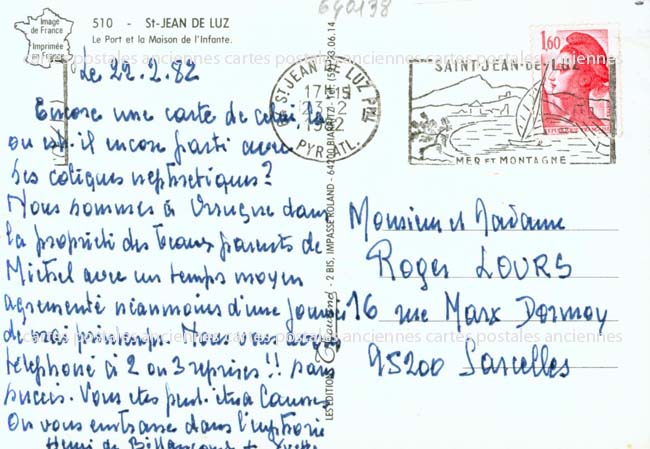 640138
Image
de France
Imprimée
en France
510 - St-JEAN DE LUZ
Le Port et la Maison de l'Infante.
Le 22.2.82
Encore une carte de celui là
ou est-il encore parti avec
ses coliques nephretiques?
Nous sommes à Urrugne dans
la propriété des beaux parents de
Michel avec un temps moyen
agrementé néanmoins d'une journée
de vrai printemps. Nous vous avons
telephoné à 2 ou 3 reprises !! sans
succes. Vous etes peut etre à Cannes
On vous embrasse dans l'euphorie
Henri de Billancourt + Yvette
LES EDITIONS - 2 BIS, IMPASSE ROLAND - 64200 BIARRITZ - Tél. (59) 23.06.14
64 St JEAN DE LUZ PPAL
17H15
23-2
1982
PYR-ATL.
SAINT-JEAN-DE-LUZ
MER ET MONTAGNE
1,60
Monsieur et Madame
Roger LOURS
16 rue Marx Dormoy
95200 Sarcelles
cartes postales anciennes cartes postales anciennes cartes postales anciennes
cartes postales anciennes cartes postales anciennes cartes postales anciennes